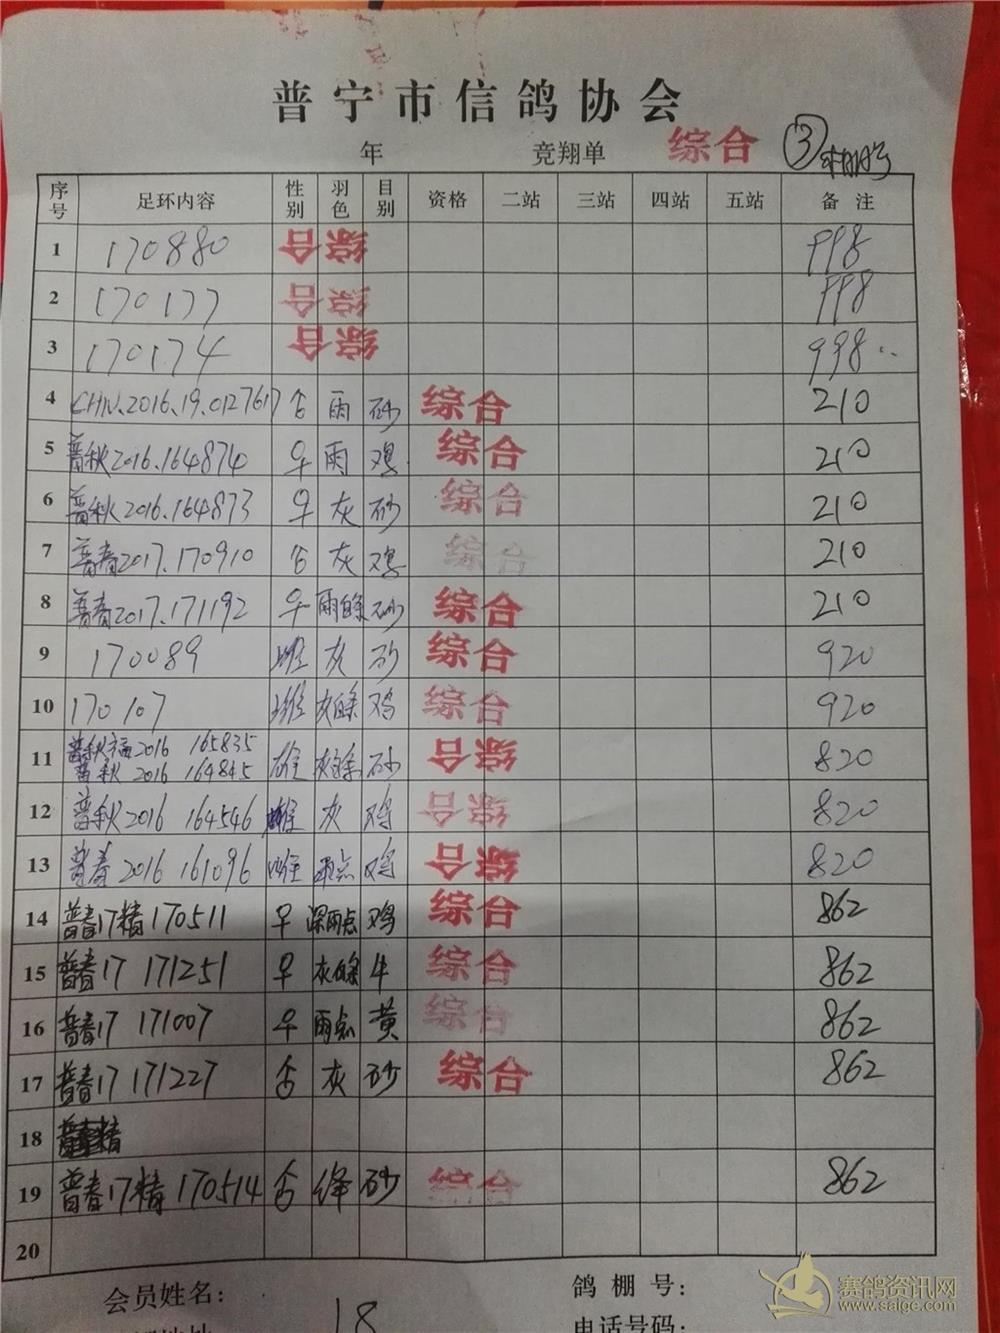 普宁市信鸽协会
年 竞翔单 综合 ③
序号 足环内容 性别 羽色 目别 资格 二站 三站 四站 五站 备注
1 170880 综合 998
2 170177 综合 998
3 170174 综合 998
4 CHN.2016.19.0127617 雨 砂 综合 210
5 普秋2016.164874 早 雨 鸡 综合 210
6 普秋2016.164873 早 灰 砂 综合 210
7 普春2017.170910 灰 鸡 综合 210
8 普春2017.171192 早 雨条 砂 综合 210
9 170089 灰 砂 综合 920
10 170107 灰条 鸡 综合 920
11 普秋福2016 165835
普秋 2016 164845 雄 砂 综合 820
12 普秋2016 164546 灰 鸡 综合 820
13 普春 2016 161096 雨点 鸡 综合 820
14 普春17精170511 早 深雨点 鸡 综合 862
15 普春17 171251 早 灰条 牛 综合 862
16 普春17 171007 早 雨点 黄 综合 862
17 普春17 171227 灰 砂 综合 862
18
19 普春17精170514 绛 砂 综合 862
20
会员姓名: 鸽棚号:
18 电话号码:
赛鸽资讯网
www.saige.com